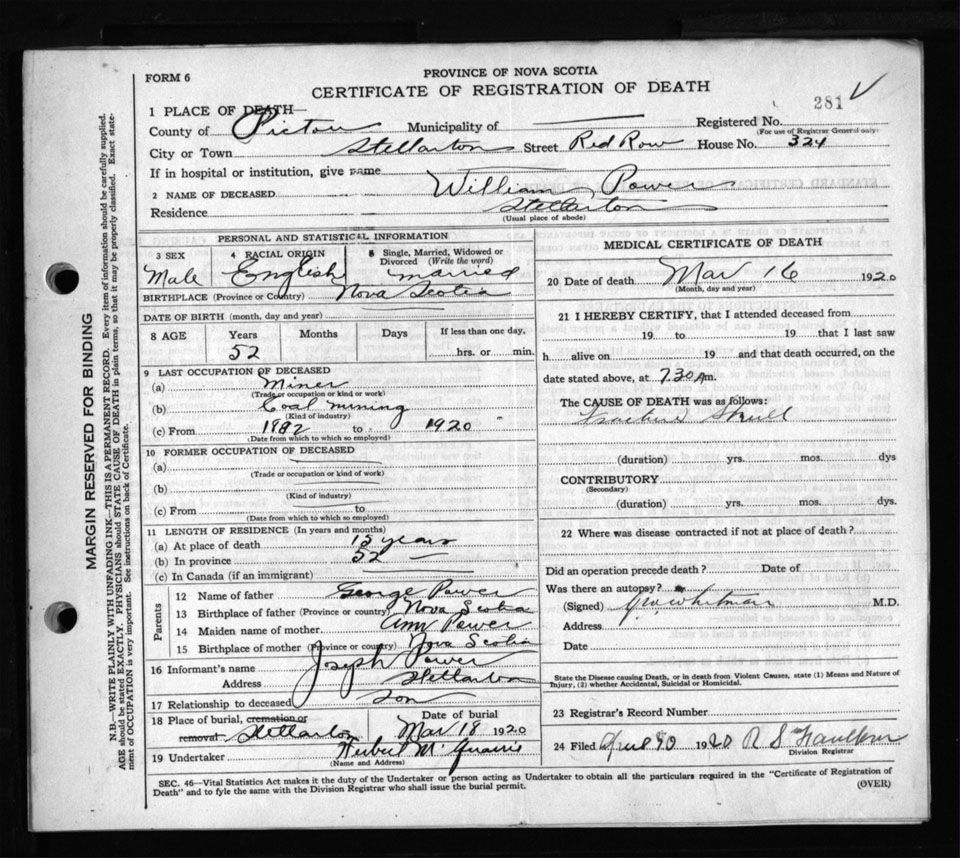 FORM 6
PROVINCE OF NOVA SCOTIA
CERTIFICATE OF REGISTRATION OF DEATH
281
1 PLACE OF DEATH
County of Pictou Municipality of Registered No.
(For use of Registrar General only)
City or Town Stellarton Street Red Row House No. 324
If in hospital or institution, give name
2 NAME OF DECEASED William Power
Residence Stellarton
(Usual place of abode)
PERSONAL AND STATISTICAL INFORMATION
3 SEX 4 RACIAL ORIGIN 5 Single, Married, Widowed or Divorced (Write the word)
Male English married
BIRTHPLACE (Province or Country) Nova Scotia
DATE OF BIRTH (month, day and year)
8 AGE Years Months Days If less than one day,
52 hrs. or min.
9 LAST OCCUPATION OF DECEASED
(a) Miner
(Trade or occupation or kind of work)
(b) Coal mining
(Kind of industry)
(c) From 1882 to 1920
(Date from which to which so employed)
10 FORMER OCCUPATION OF DECEASED
(a)
(Trade or occupation or kind of work)
(b)
(Kind of industry)
(c) From to
(Date from which to which so employed)
11 LENGTH OF RESIDENCE (In years and months)
(a) At place of death years
(b) In province 52
(c) In Canada (if an immigrant)
Parents
12 Name of father George Power
13 Birthplace of father (Province or country) Nova Scotia
14 Maiden name of mother Ann Power
15 Birthplace of mother (Province or country) Nova Scotia
16 Informant's name Joseph Power
Address Stellarton
17 Relationship to deceased Son
18 Place of burial, cremation or removal Stellarton Date of burial Mar 18 1920
19 Undertaker
(Name and Address)
MEDICAL CERTIFICATE OF DEATH
20 Date of death Mar 16 1920
(Month, day and year)
21 I HEREBY CERTIFY, that I attended deceased from
19 to 19 that I last saw
h alive on 19 and that death occurred, on the
date stated above, at 7.30 Am.
The CAUSE OF DEATH was as follows:
Fracture Skull
(duration) yrs. mos. dys
CONTRIBUTORY
(Secondary)
(duration) yrs. mos. dys.
22 Where was disease contracted if not at place of death?
Did an operation precede death? Date of
Was there an autopsy?
(Signed) Whitman M.D.
Address
Date
State the Disease causing Death, or in death from Violent Causes, state (1) Means and Nature of
Injury, (2) whether Accidental, Suicidal or Homicidal.
23 Registrar's Record Number
24 Filed 1920 R S
Division Registrar
SEC. 46—Vital Statistics Act makes it the duty of the Undertaker or person acting as Undertaker to obtain all the particulars required in the "Certificate of Registration of
Death" and to fyle the same with the Division Registrar who shall issue the burial permit.
(OVER)
MARGIN RESERVED FOR BINDING
N.B.—WRITE PLAINLY WITH UNFADING INK—THIS IS A PERMANENT RECORD. Every item of information should be carefully supplied.
AGE should be stated EXACTLY. PHYSICIANS should STATE CAUSE OF DEATH in plain terms, so that it may be properly classified. Exact state-
ment of OCCUPATION is very important. See instructions on back of Certificate.